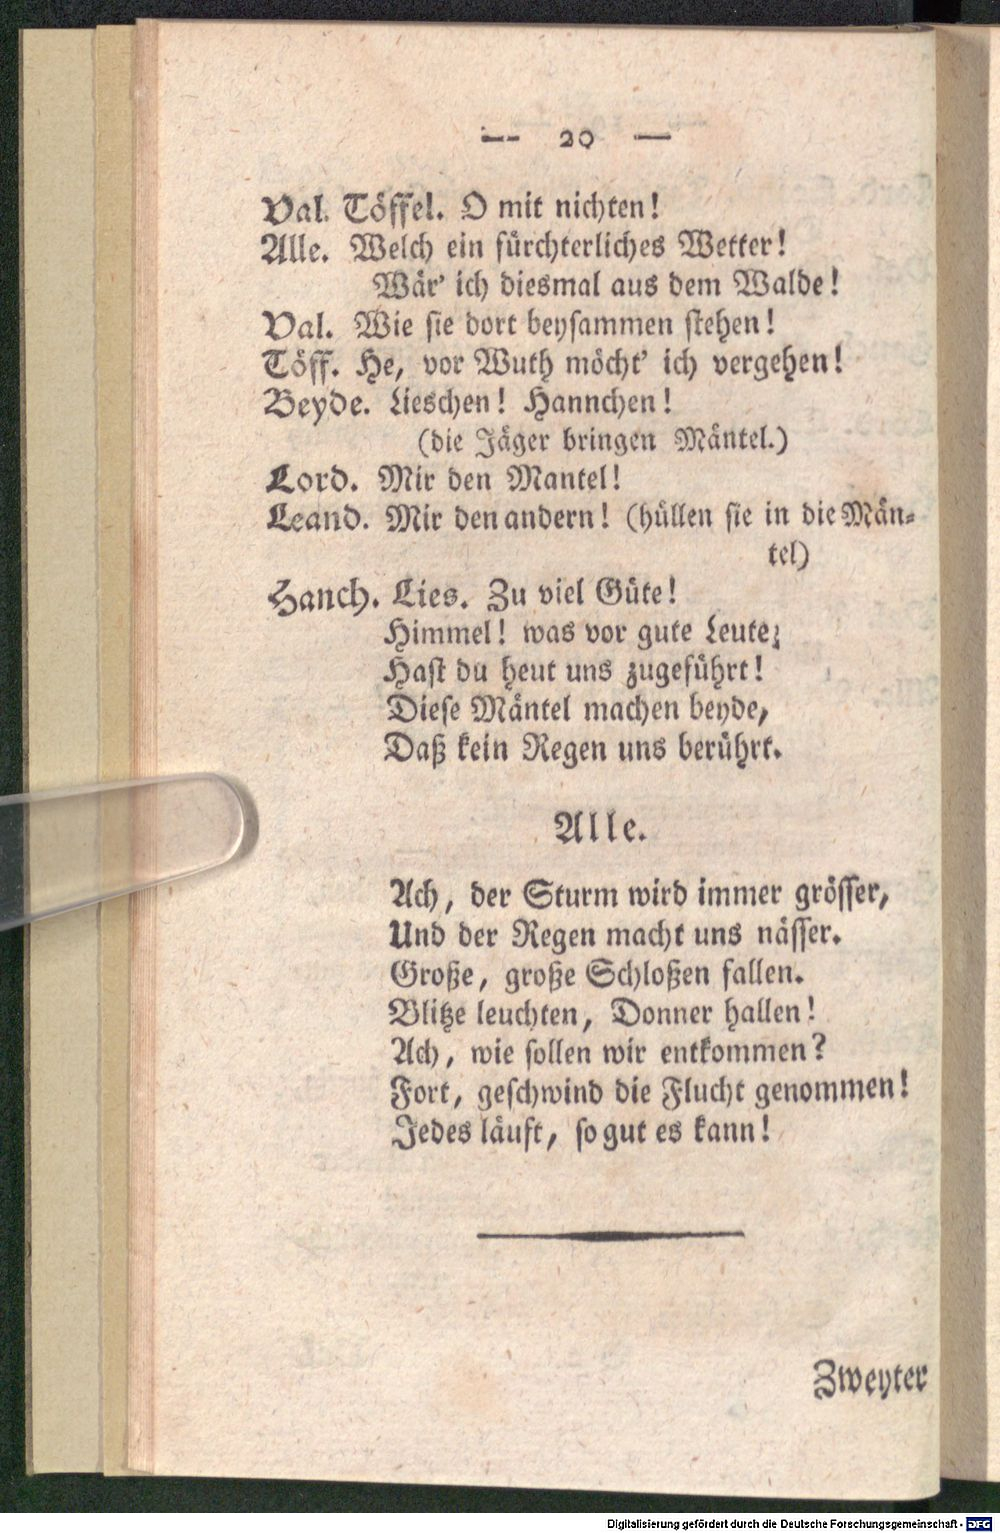 — 20 —
Val. Töffel. O mit nichten!
Alle. Welch ein fürchterliches Wetter!
Wär' ich diesmal aus dem Walde!
Val. Wie sie dort beysammen stehen!
Töff. He, vor Wuth möcht' ich vergehen!
Beyde. Lieschen! Hannchen!
(die Jäger bringen Mäntel.)
Lord. Mir den Mantel!
Leand. Mir den andern! (hüllen sie in die Män-
tel)
Hanch. Lies. Zu viel Güte!
Himmel! was vor gute Leute;
Hast du heut uns zugeführt!
Diese Mäntel machen beyde,
Daß kein Regen uns berührt.
Alle.
Ach, der Sturm wird immer grösser,
Und der Regen macht uns nässer.
Große, große Schloßen fallen.
Blitze leuchten, Donner hallen!
Ach, wie sollen wir entkommen?
Fort, geschwind die Flucht genommen!
Jedes läuft, so gut es kann!
Zweyter
Digitalisierung gefördert durch die Deutsche Forschungsgemeinschaft - DFG